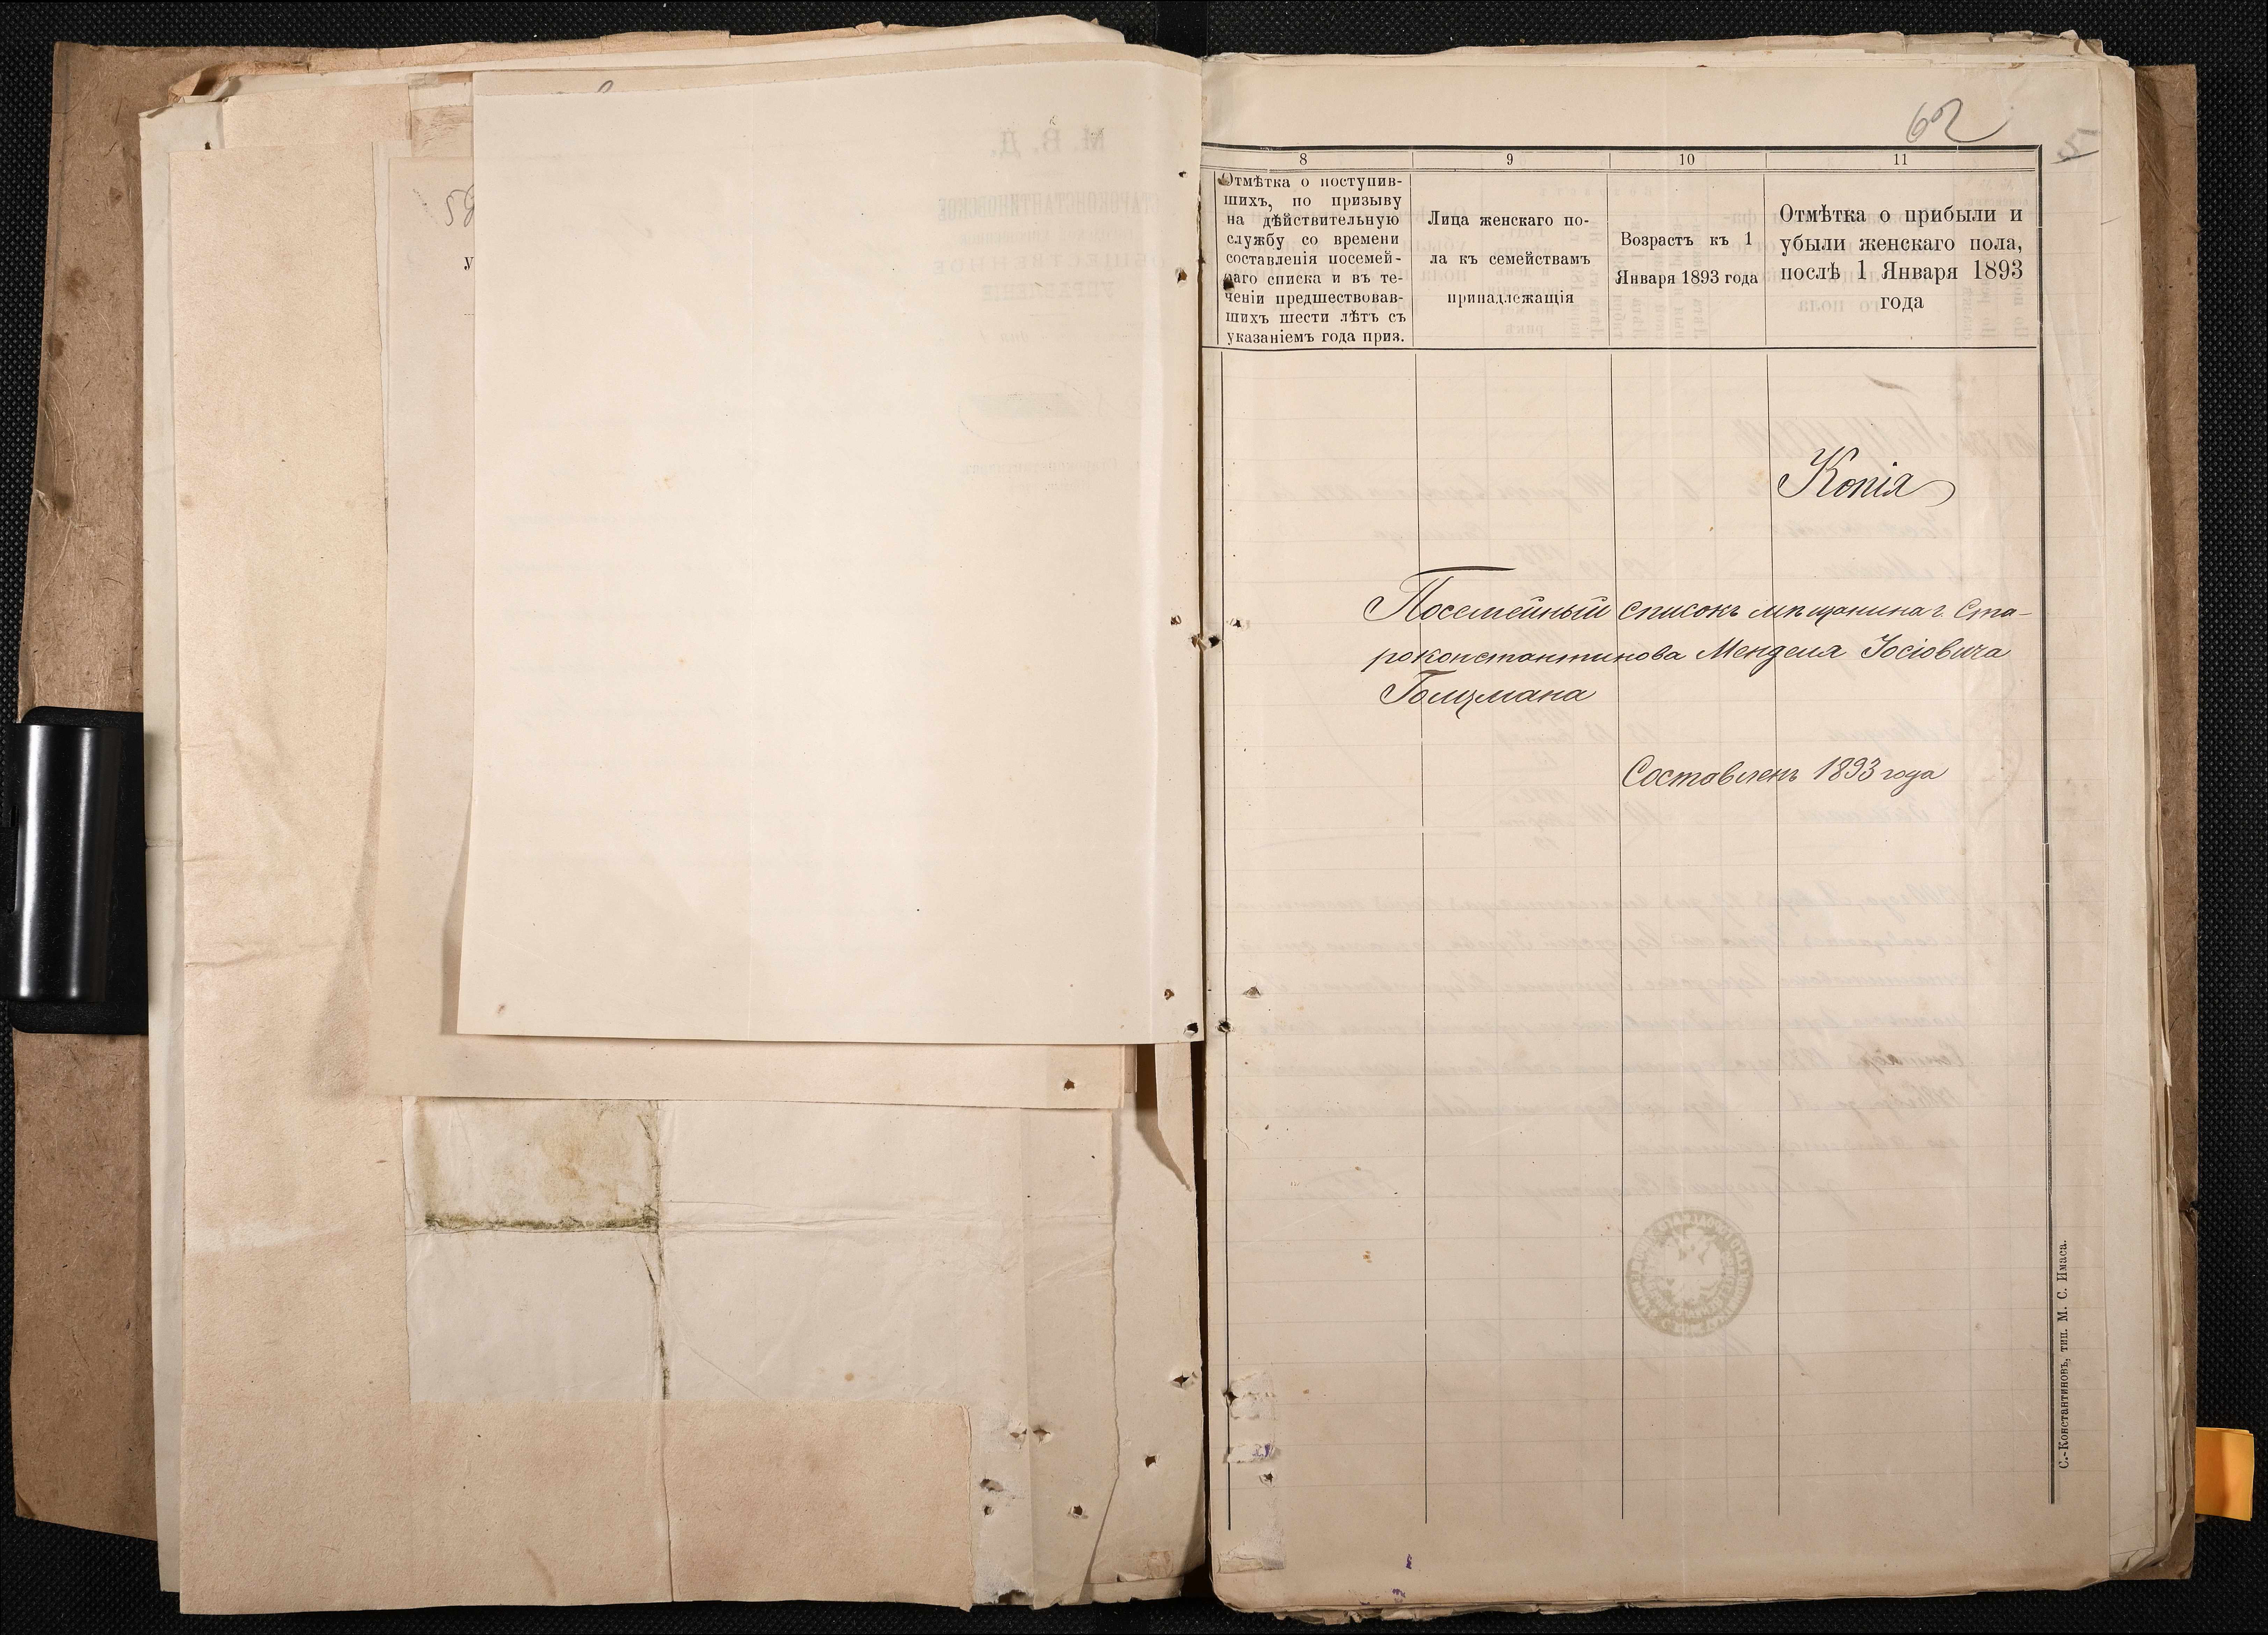 62
8
Отмѣтка о поступив-
шихъ, по призыву
на дѣйствительную
службу со времени
составленія посемей-
наго списка и въ те-
ченіи предшествовав-
шихъ шести лѣтъ съ
указаніемъ года приз.
9
Лица женскаго по-
ла къ семействамъ
принадлежащія
10
Возрастъ къ 1
Января 1893 года
11
Отмѣтка о прибыли и
убыли женскаго пола,
послѣ 1 Января 1893
года
Копія
Посемейный списокъ мѣщанина г. Ста-
роконстантинова Менделя Іосіовича
Голцмана
Составленъ 1893 года
С.-Константиновъ, тип. М. С. Имаса.